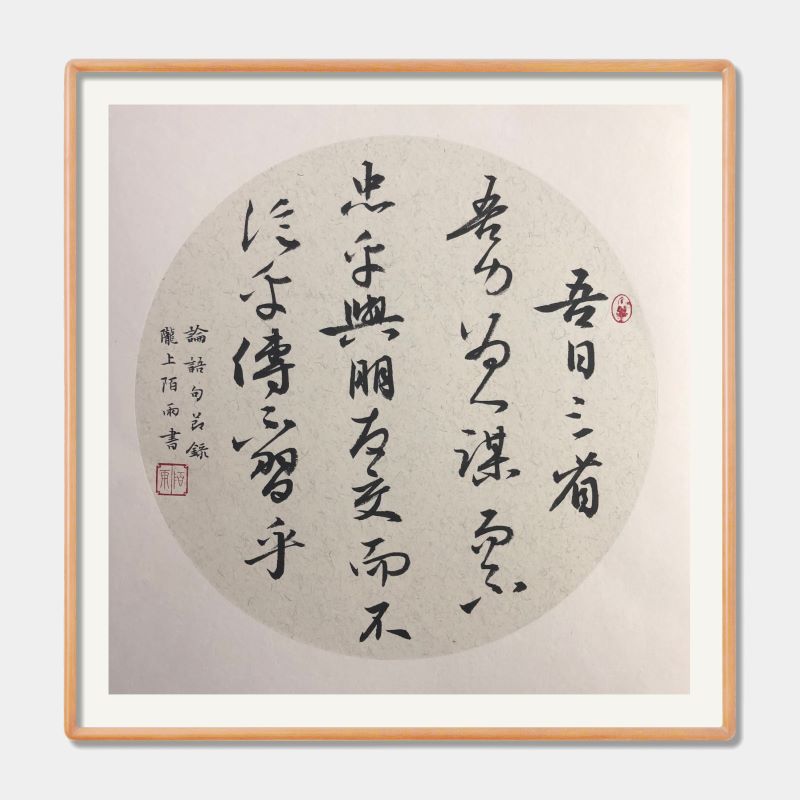 吾日三省
吾身為人謀而不
忠乎與朋友交而不
信乎傳不習乎
論語句节錄
隴上陌雨書